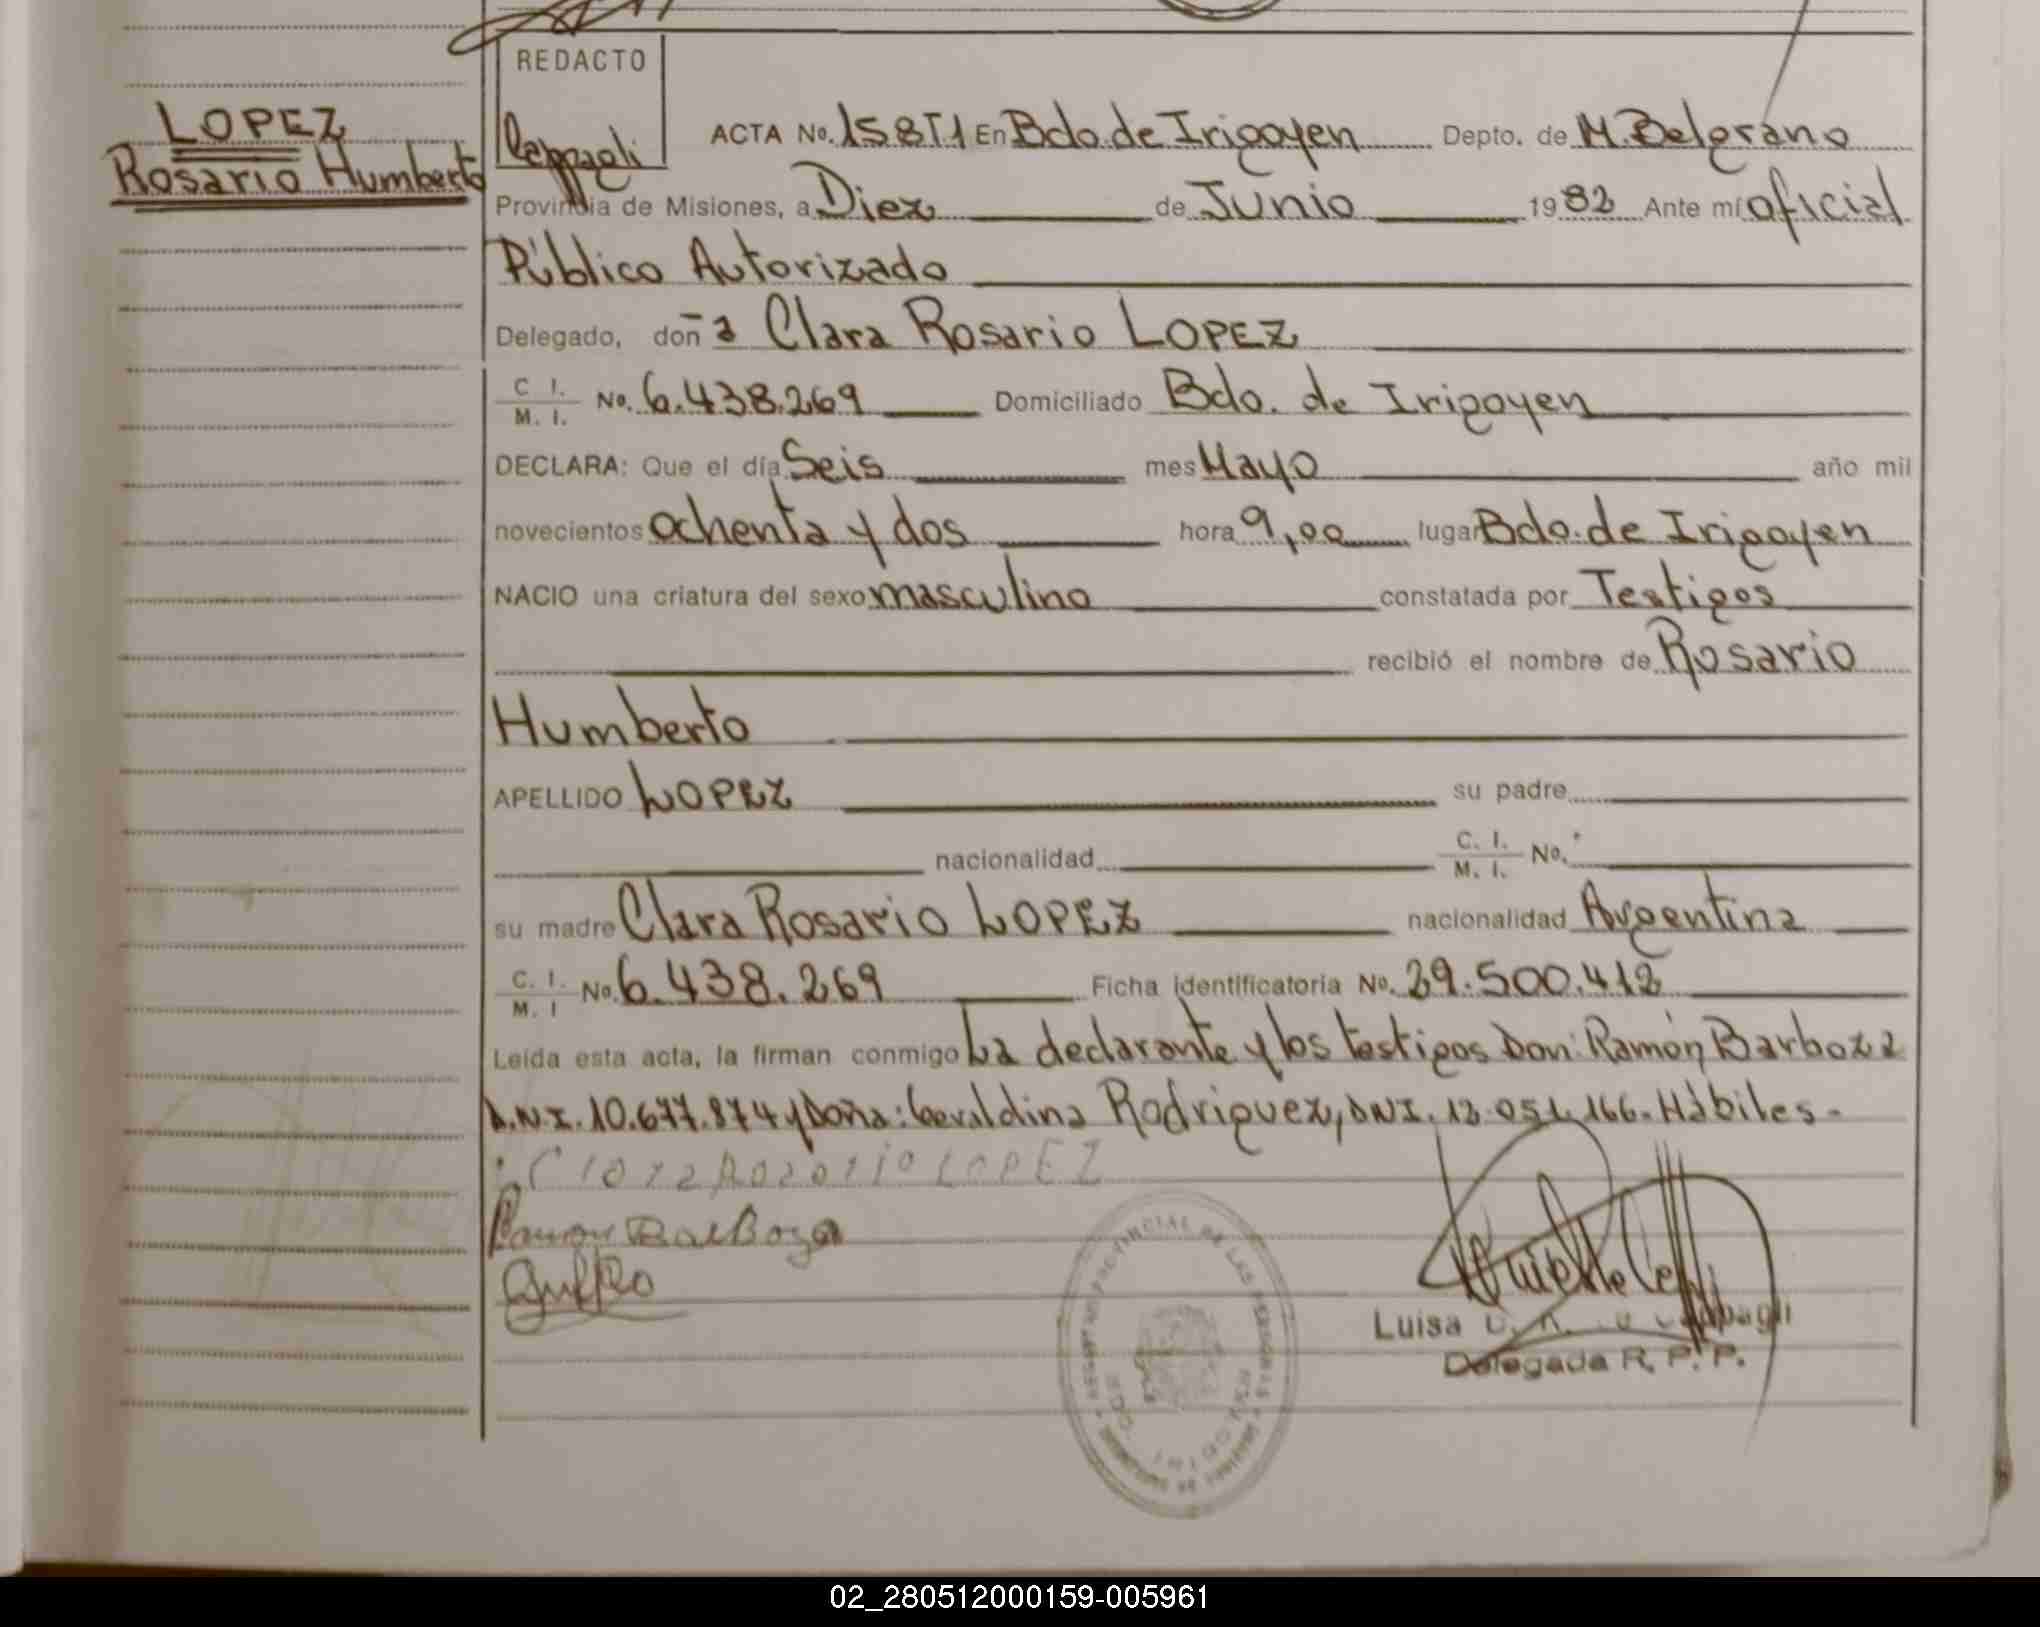 REDACTO
LOPEZ
Rosario Humberto
Ceppagli
ACTA No. 158T1 En Bdo. de Irigoyen Depto. de M. Belgrano
Provincia de Misiones, a Diez de Junio 1982 Ante mí oficial
Público Autorizado
Delegado, doña Clara Rosario LOPEZ
C. I. / M. I. No. 6.438.269 Domiciliado Bdo. de Irigoyen
DECLARA: Que el día Seis mes Mayo año mil
novecientos ochenta y dos hora 9,00 lugar Bdo. de Irigoyen
NACIO una criatura del sexo masculino constatada por Testigos
recibió el nombre de Rosario
Humberto
APELLIDO LOPEZ su padre
nacionalidad C. I. / M. I. No.
su madre Clara Rosario LOPEZ nacionalidad Argentina
C. I. / M. I No. 6.438.269 Ficha identificatoria No. 29.500.412
Leída esta acta, la firman conmigo La declarante y los testigos Don: Ramón Barboza
D.N.I. 10.677.874 y Doña: Geraldina Rodriguez, DNI. 12.051.166. Hábiles.-
Clara Rosario LOPEZ
Ramon Barboza
Luisa
Delegada R. P. P.
02_280512000159-005961